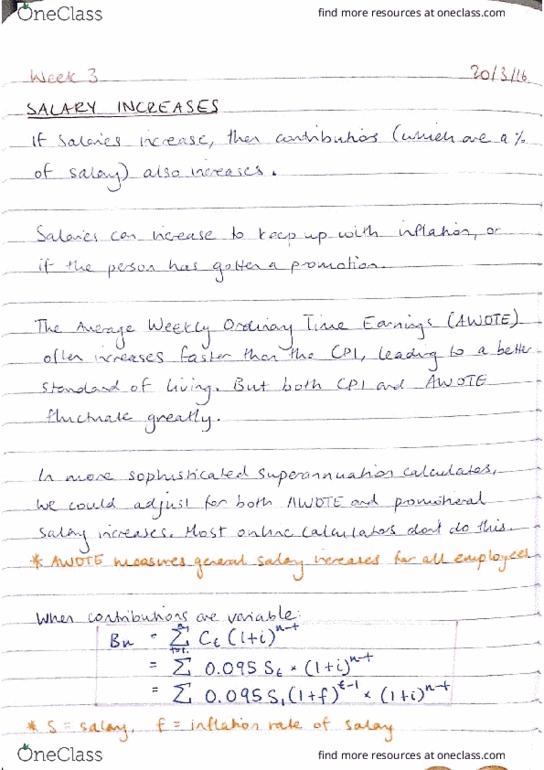 OneClass
find more resources at oneclass.com
Week 3
20/3/16
SALARY INCREASES
If salaries increase, then contributions (which are a %
of salary) also increases.
Salaries can increase to keep up with inflation, or
if the person has gotten a promotion.
The Average Weekly Ordinary Time Earnings (AWOTE)
often increases faster than the CPI, leading to a better
standard of living. But both CPI and AWOTE
fluctuate greatly.
In more sophisticated superannuation calculates,
we could adjust for both AWOTE and promotional
salary increases. Most online calculators don't do this.
* AWOTE measures general salary increases for all employees
When contributions are variable:
Bn = n∑t=1 Ct (1+i)^n-t
= ∑ 0.095 St × (1+i)^n-t
= ∑ 0.095 S1 (1+f)^t-1 × (1+i)^n-t
* S = salary, f = inflation rate of salary
OneClass
find more resources at oneclass.com